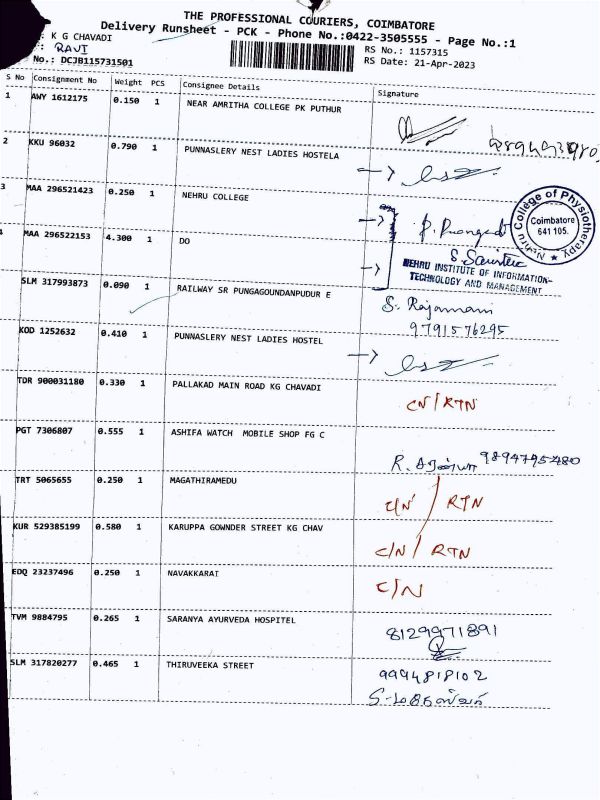 THE PROFESSIONAL COURIERS, COIMBATORE
Delivery Runsheet - PCK - Phone No.:0422-3505555 - Page No.:1
: K G CHAVADI RS No.: 1157315
: RAVI RS Date: 21-Apr-2023
No.: DCJB115731501
S No Consignment No Weight PCS Consignee Details Signature
1 AWY 1612175 0.150 1 NEAR AMRITHA COLLEGE PK PUTHUR
2 KKU 96032 0.790 1 PUNNASLERY NEST LADIES HOSTELA
3 MAA 296521423 0.250 1 NEHRU COLLEGE
Nehru College of Physiotherapy
Coimbatore
641 105.
4 MAA 296522153 4.300 1 DO
NEHRU INSTITUTE OF INFORMATION-
TECHNOLOGY AND MANAGEMENT
SLM 317993873 0.090 1 RAILWAY SR PUNGAGOUNDANPUDUR E S. Rajamani
9791576295
KOD 1252632 0.410 1 PUNNASLERY NEST LADIES HOSTEL
TDR 900031180 0.330 1 PALLAKAD MAIN ROAD KG CHAVADI CN/RTN
PGT 7306807 0.555 1 ASHIFA WATCH MOBILE SHOP FG C R. 9894795480
TRT 5065655 0.250 1 MAGATHIRAMEDU C/N / RTN
KUR 529385199 0.580 1 KARUPPA GOWNDER STREET KG CHAV C/N / RTN
EDQ 23237496 0.250 1 NAVAKKARAI C/N
TVM 9884795 0.265 1 SARANYA AYURVEDA HOSPITEL 8129971891
SLM 317820277 0.465 1 THIRUVEEKA STREET 9994818102